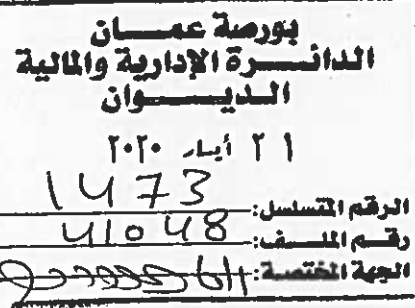 بورصة عمـــان
الدائـــرة الإدارية والمالية
الديـــوان
٢١ أيار ٢٠٢٠
الرقم المتسلسل: 1473
رقم الملف: 41048
الجهة المختصة: